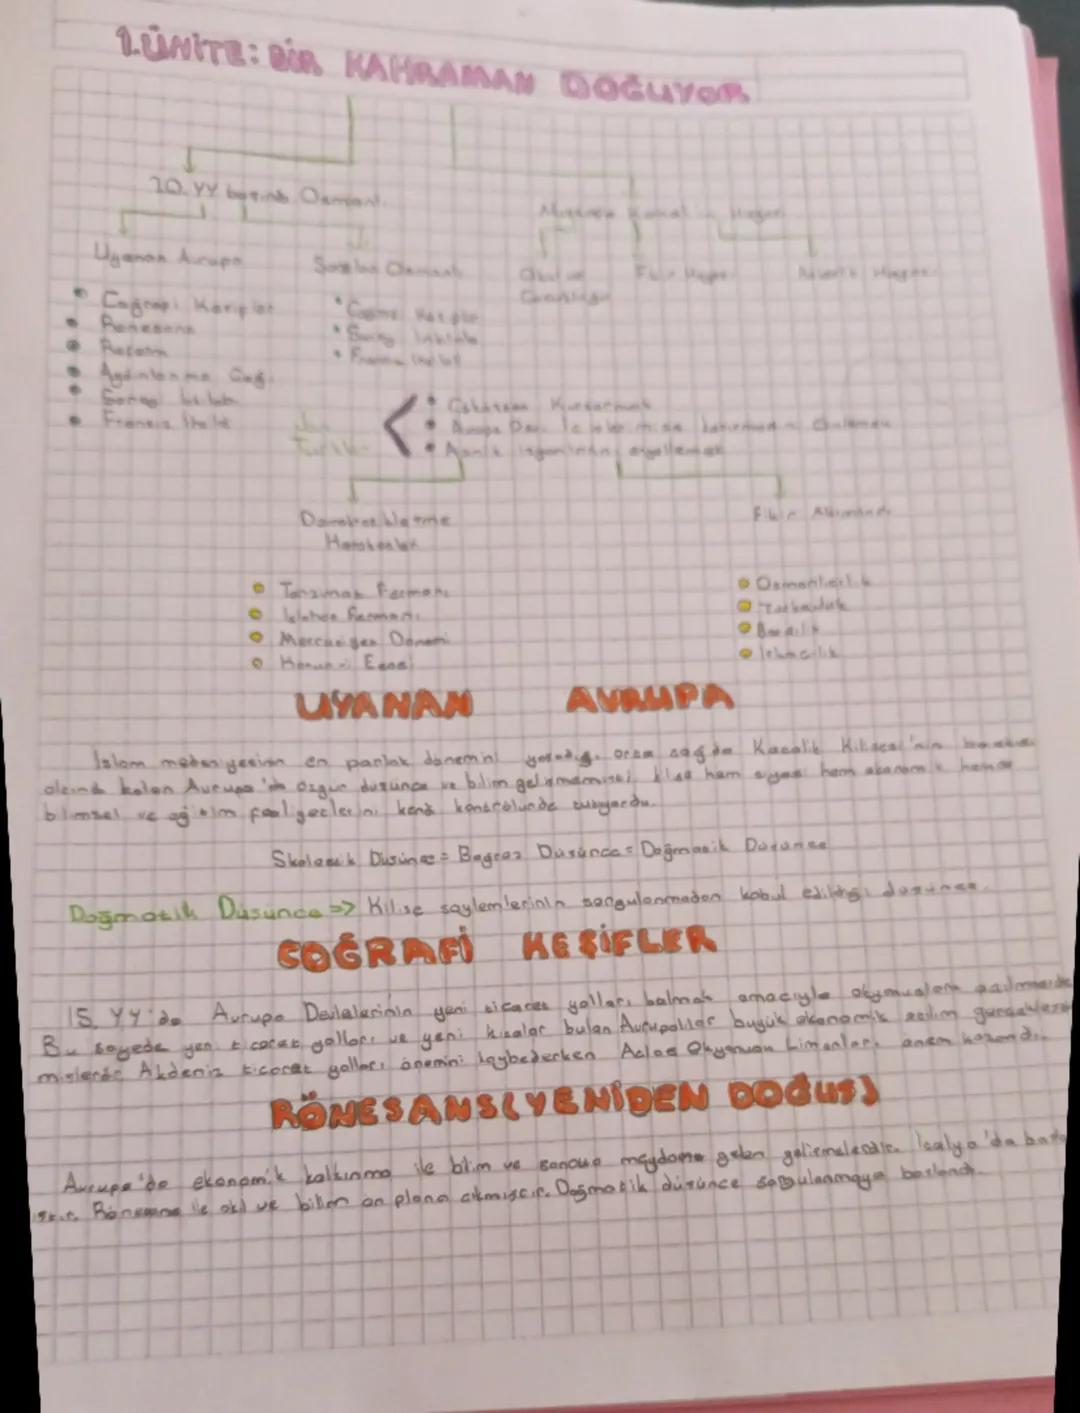 1.ÜNİTE: BİR KAHRAMAN DOĞUYOR
20. YY başında Osmanlı
Mustafa Kemal'in Hayatı
Uyanan Avrupa
Sarsılan Osmanlı
Okul
Fikir Hayatı
Askerlik Hayatı
Coğrafi Keşifler
Rönesans
Reform
Aydınlanma Çağı
Sanayi İnkılabı
Fransız İhtilali
Coğrafi Keşifler
Sanayi İnkılabı
Fransız İhtilali
Kurtarmak
Avrupa Dev. İç işlerimize karışmasını Önlemek
Azınlık isyanlarını engellemek
Demokratikleşme
Hareketleri
Fikir Akımları
Tanzimat Fermanı
Islahat Fermanı
Meşrutiyet Dönemi
Kanun-i Esasi
Osmanlıcılık
Türkçülük
Batıcılık
İslamcılık
UYANAN AVRUPA
İslam medeniyetinin en parlak dönemini yaşadığı orta çağda Katolik Kilisesi'nin baskısı
altında kalan Avrupa'da özgür düşünce ve bilim gelişmemişti. Kilise hem siyasi hem ekonomik hemde
bilimsel ve eğitim faaliyetlerini kendi kontrolünde tutuyordu.
Skolastik Düşünce = Bağnaz Düşünce = Doğmatik Düşünce
Doğmatik Düşünce => Kilise söylemlerinin sorgulanmadan kabul edildiği düşünce.
COĞRAFİ KEŞİFLER
15. YY'da Avrupa Devletlerinin yeni ticaret yolları bulmak amacıyla okyanuslara açılmasıdır
Bu sayede yeni ticaret yolları ve yeni kıtalar bulan Avrupalılar büyük ekonomik atılım gerçekleştir
mişlerdir. Akdeniz ticaret yolları önemini kaybederken Atlas Okyanusu Limanları önem kazandı.
RÖNESANS(YENİDEN DOĞUŞ)
Avrupa'da ekonomik kalkınma ile bilim ve sanatta meydana gelen gelişmelerdir. İtalya'da başla
mıştır. Rönesans ile akıl ve bilim ön plana çıkmıştır. Doğmatik düşünce sorgulanmaya başlandı.